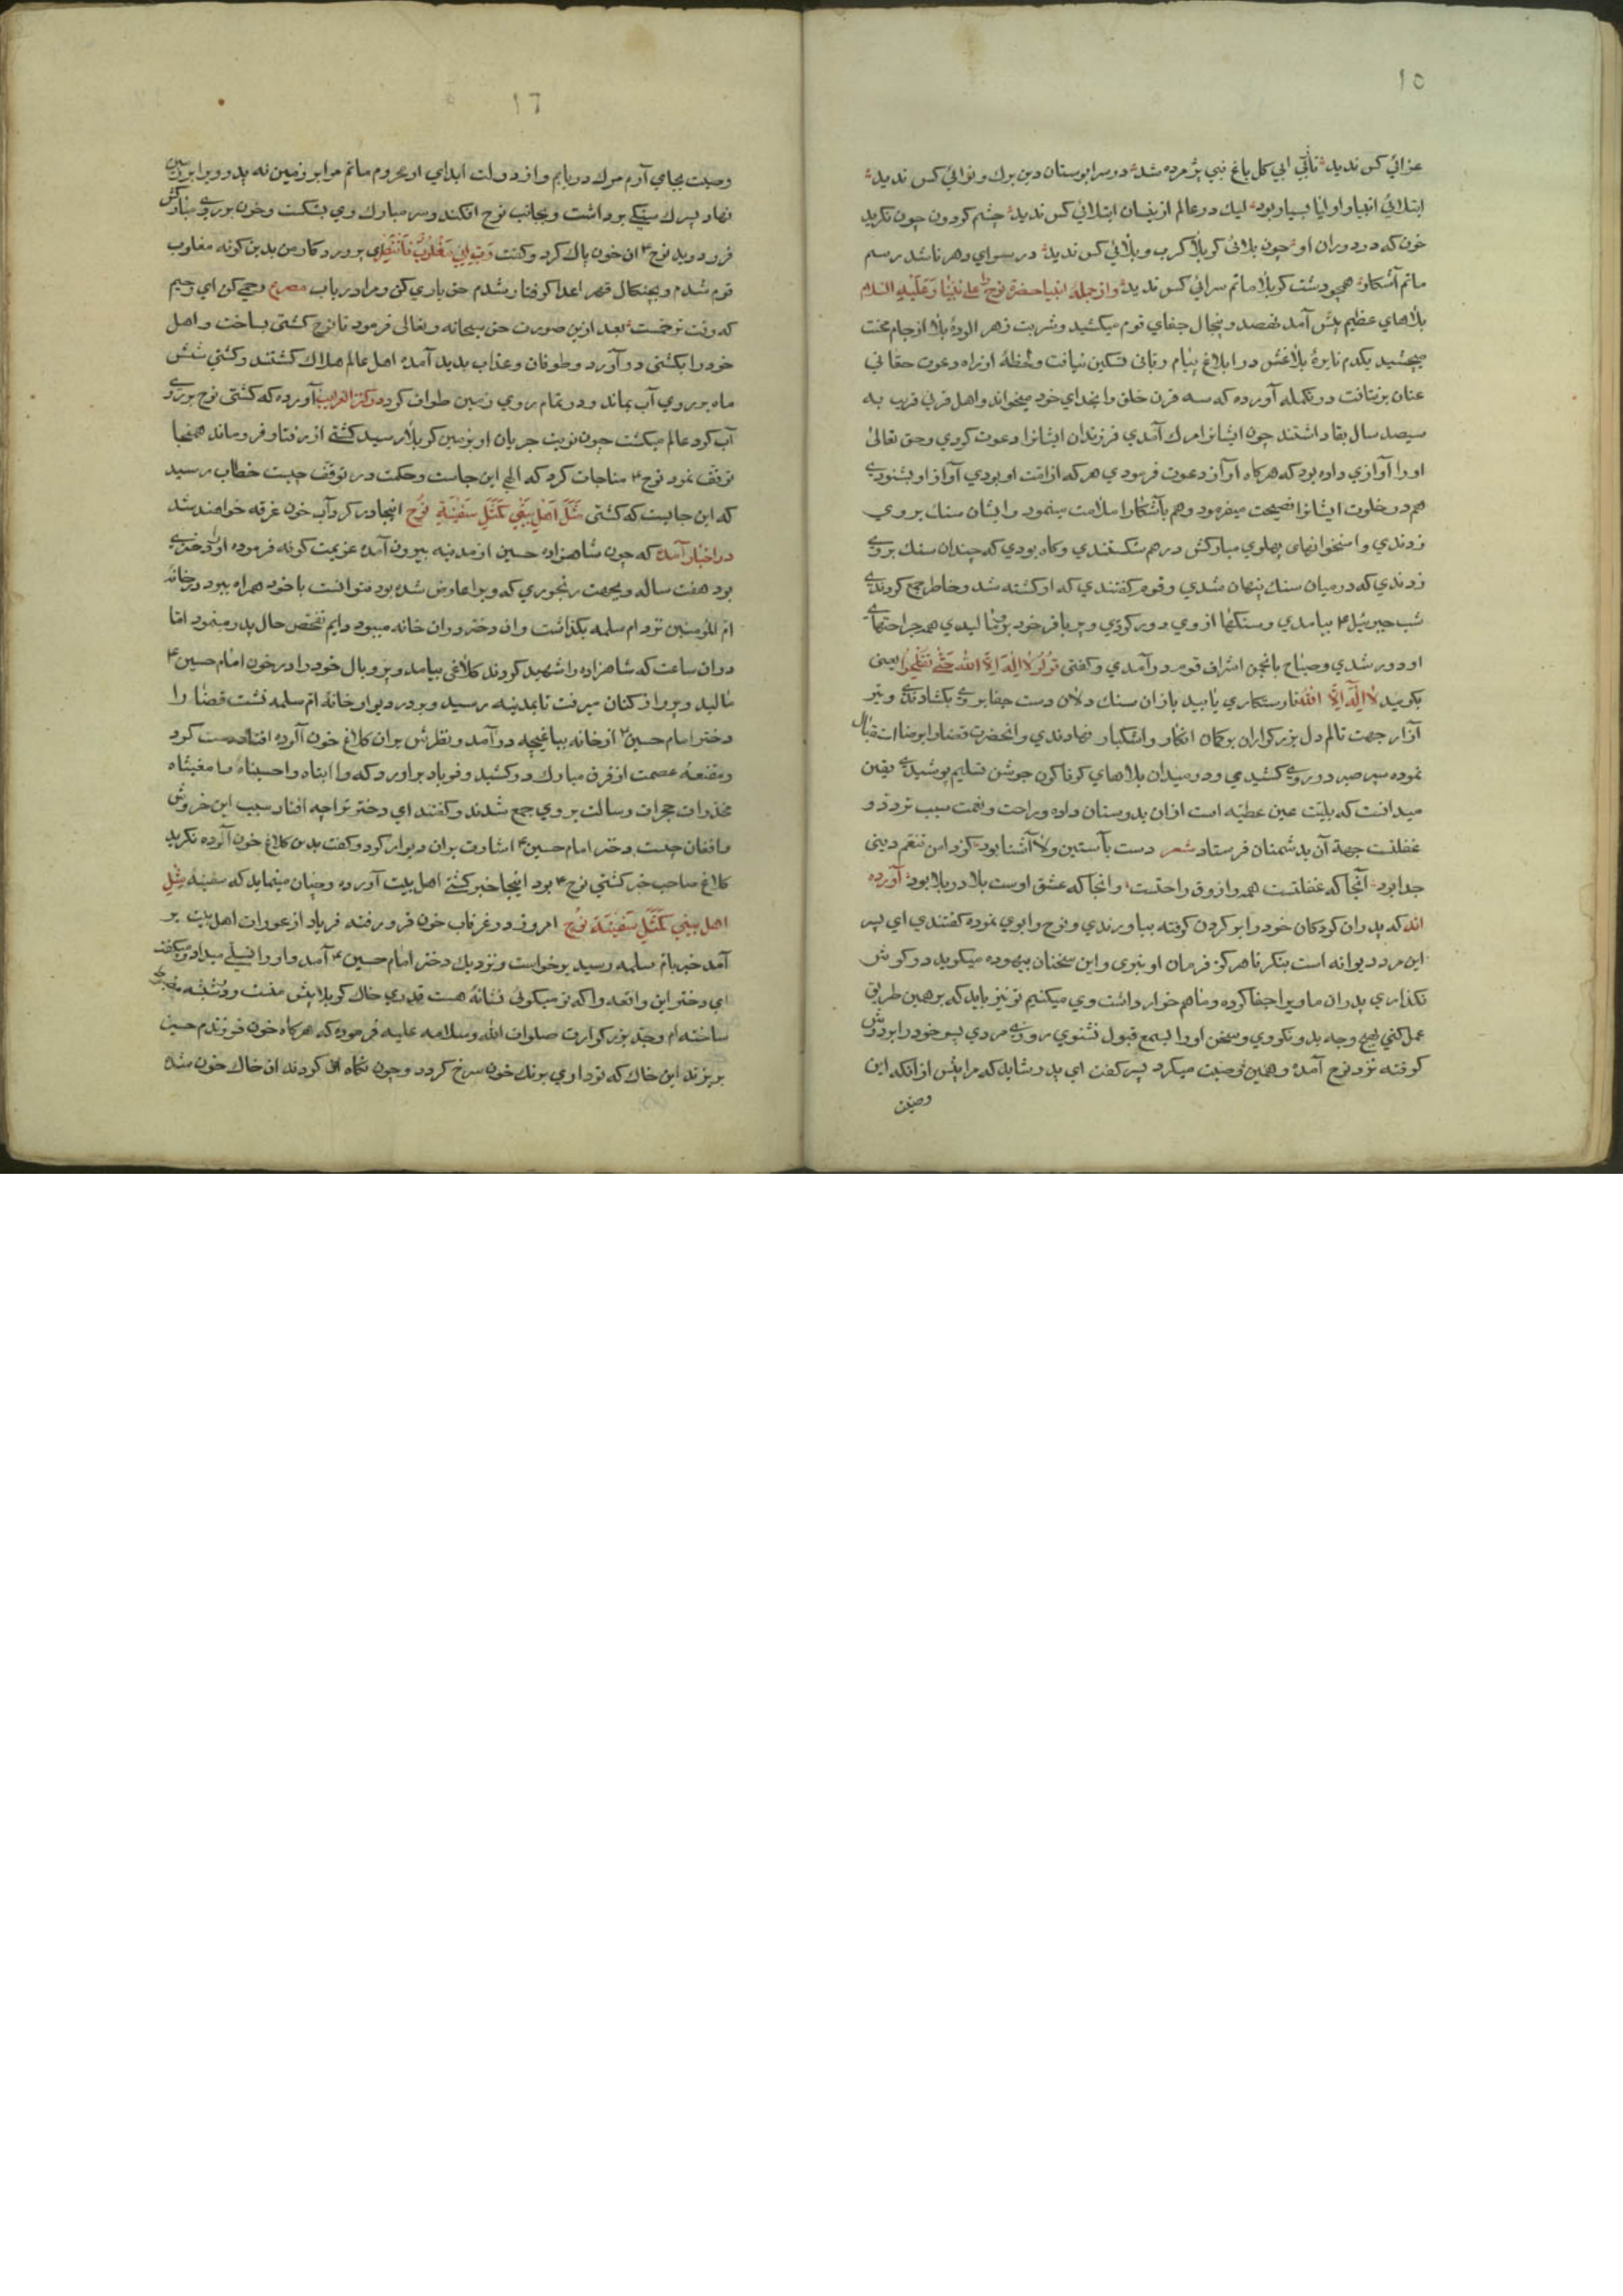 ١٥
عزائي كس نديد تا بي كل باغ نبي پژمرده شد در سرابوستان دين برك و نوائي كس نديد
ابتلاي انبيا و اوليا بسيار بود ليك در عالم ازينسان ابتلائي كس نديد چشم كردون چون نكريد
خون كه در دوران او چون بلائي كربلا كرب و بلائي كس نديد در سراي دهر تا شد رسم
ماتم آشكار همچو دشت كربلا ماتم سرائي كس نديد و از جملهٔ انبيا حضرة نوح على نبينا و عليه السلام
بلاهاي عظيم پيش آمد نهصد و پنجاه سال جفاي قوم ميكشيد و شربت زهر الودهٔ بلا از جام محنت
ميچشيد يكدم نايرهٔ بلاغتش در ابلاغ پيام رباني تسكين نيافت و لحظهٔ از راه دعوت حقاني
عنان برنتافت در تكمله آورده كه سه قرن خلق را بخداي خود ميخواند و اهل قرني قريب به
سيصد سال بقا داشتند چون ايشانرا مرك آمدي فرزندان ايشانرا دعوت كردي و حق تعالى
او را آوازي داده بود كه هركاه آواز دعوت فرمودي هر كه از امت او بودي آواز او بشنودي
هم در خلوت ايشانرا نصيحت ميفرمود و هم بآشكارا ملامت مينمود و ايشان سنك بر وي
زدندي و استخوانهاى پهلوي مباركش درهم شكستندي و كاه بودي كه چندان سنك بروي
زدندي كه در ميان سنك پنهان شدي و قوم كفتندي كه او كشته شد و خاطر جمع كردندي
شب جبرئيل ٤ بيامدي و سنكها از وي دور كردي و پر بافر خود بر وي ماليدي همه جراحتهاي
او دور شدي و صباح بانجمن اشراف قوم درآمدي و كفتى قولوا لا اله الا الله حتى تفلحوا يعنى
بكوييد لا اله الا الله تا رستكاري يابيد باز ان سنك دلان دست جفا بر وي بكشادندي و تير
آزار جهت تالم دل بزركواران بركمان انكار و استكبار نهادندي و انحضرت قضا را برضا استقبال
نموده سپر صبر در روي كشيدي و در ميدان بلاهاي كوناكون جوشن تسليم پوشيدي يقين
ميدانست كه بليت عين عطيه است ازان بدوستان داده و راحت و نعمت سبب تردد و
غفلتست جهة آن بدشمنان فرستاد شعر دست بآستين ولا آشنا بود كز دامن تنعم دينى
جدا بود آنجا كه غفلتست همه ذوق و راحتست وانجا كه عشق اوست بلا در بلا بود آورده
اند كه پدران كودكان خود را بر كردن كرفته بياوردندي و نوح را بوي نموده كفتندي اي پسر
اين مرد ديوانه است بنكر تا هركز فرمان او نبري و اين سخنان بيهوده ميكويد در كوش
نكذاري پدران ما ويرا جفا كرده و ما هم خوار داشت وي ميكنيم تو نيز بايد كه برهمين طريق
عمل كني بهيچ وجه بدو نكروي و سخن او را بسمع قبول نشنوي روزي مردي پسر خود را بر دوش
كرفته نزد نوح آمد و همين وصيت ميكرد پسر كفت اي پدر شايد كه مرا پيش از انكه اين
وصيت
١٦
وصيت بجاي آرم مرك دريابم و از دولت ايذاي او محروم مانم مرا بر زمين نه پدر ويرا بر زمين
نهاد پسرك سنكي برداشت و بجانب نوح افكند و سر مبارك وي بشكست و خون بر روي مباركش
فرو دويد نوح ٤ ان خون پاك كرد و كفت رب اني مغلوب فانتصر اي پروردكار من بدين كونه مغلوب
قوم شدم و بچنكال قهر اعدا كرفتار شدم حق ياري كن و مرا درياب مصرع رحمي كن اي رحيم
كه وقت ترحمست بعد ازين صورت حق سبحانه و تعالى فرمود تا نوح كشتى بساخت و اهل
خود را بكشتى درآورد و طوفان و عذاب پديد آمد اهل عالم هلاك كشتند و كشتي شش
ماه بر روي آب بماند و در تمام روي زمين طواف كرد در كنز الغرايب آورده كه كشتى نوح بر روي
آب كرد عالم ميكشت چون نوبت جريان او بزمين كربلا رسيد كشتي از رفتار فرو ماند همانجا
توقف نمود نوح ٤ مناجات كرد كه الهي اين جاست و حكمت در توقف چيست خطاب رسيد
كه اين جاييست كه كشتى مثل اهل بيتي كمثل سفينة نوح اينجا در كرداب خون غرقه خواهند شد
در اخبار آمده كه چون شاهزاده حسين از مدينه بيرون آمد عزيمت كوفه فرموده او را دختري
بود هفت ساله و بجهت رنجوري كه ويرا عارض شده بود نتوانست با خود همراه ببرد در خانه
ام المومنين نزد ام سلمه بكذاشت و ان دختر دران خانه ميبود دايم تفحص حال پدر مينمود اما
دران ساعت كه شاهزاده را شهيد كردند كلاغى بيامد و پر و بال خود را در خون امام حسين ٤
ماليد و پرواز كنان ميرفت تا بمدينه رسيد و بر در ديوار خانهٔ ام سلمه نشست قضا را
دختر امام حسين ٤ از خانه بباغچه درآمد و نظرش بران كلاغ خون آلوده افتاد دست كرد
و مقنعهٔ عصمت از فرق مبارك در كشيد و فرياد براورد كه وا ابتاه وا حسيناه وا مغيثاه
مخدرات حجرات رسالت بر وي جمع شدند و كفتند اي دختر ترا چه افتاد سبب اين خروش
و افغان چيست دختر امام حسين ٤ اشارت بران ديوار كرد و كفت بدين كلاغ خون آلوده نكريد
كلاغ صاحب خبر كشتي نوح ٤ بود اينجا خبر كشتي اهل بيت آورده و چنان مينمايد كه سفينه مثل
اهل بيتي كمثل سفينة نوح امروز در غرقاب خون فرو رفته فرياد از عورات اهل بيت بر
آمد خبر بام سلمه رسيد برخواست و نزديك دختر امام حسين ٤ آمد و او را تسلي ميداد و ميكفت
اي دختر اين واقعه را كه تو ميكوئي نشانهٔ هست قدري خاك كربلا پيش منست و در شيشه مضبوط
ساخته ام و جد بزركوارت صلوات الله و سلامه عليه فرموده كه هركاه خون فرزندم حسين
بريزند اين خاك كه تو داري برنك خون سرخ كردد و چون نكاه كردند ان خاك خون شده